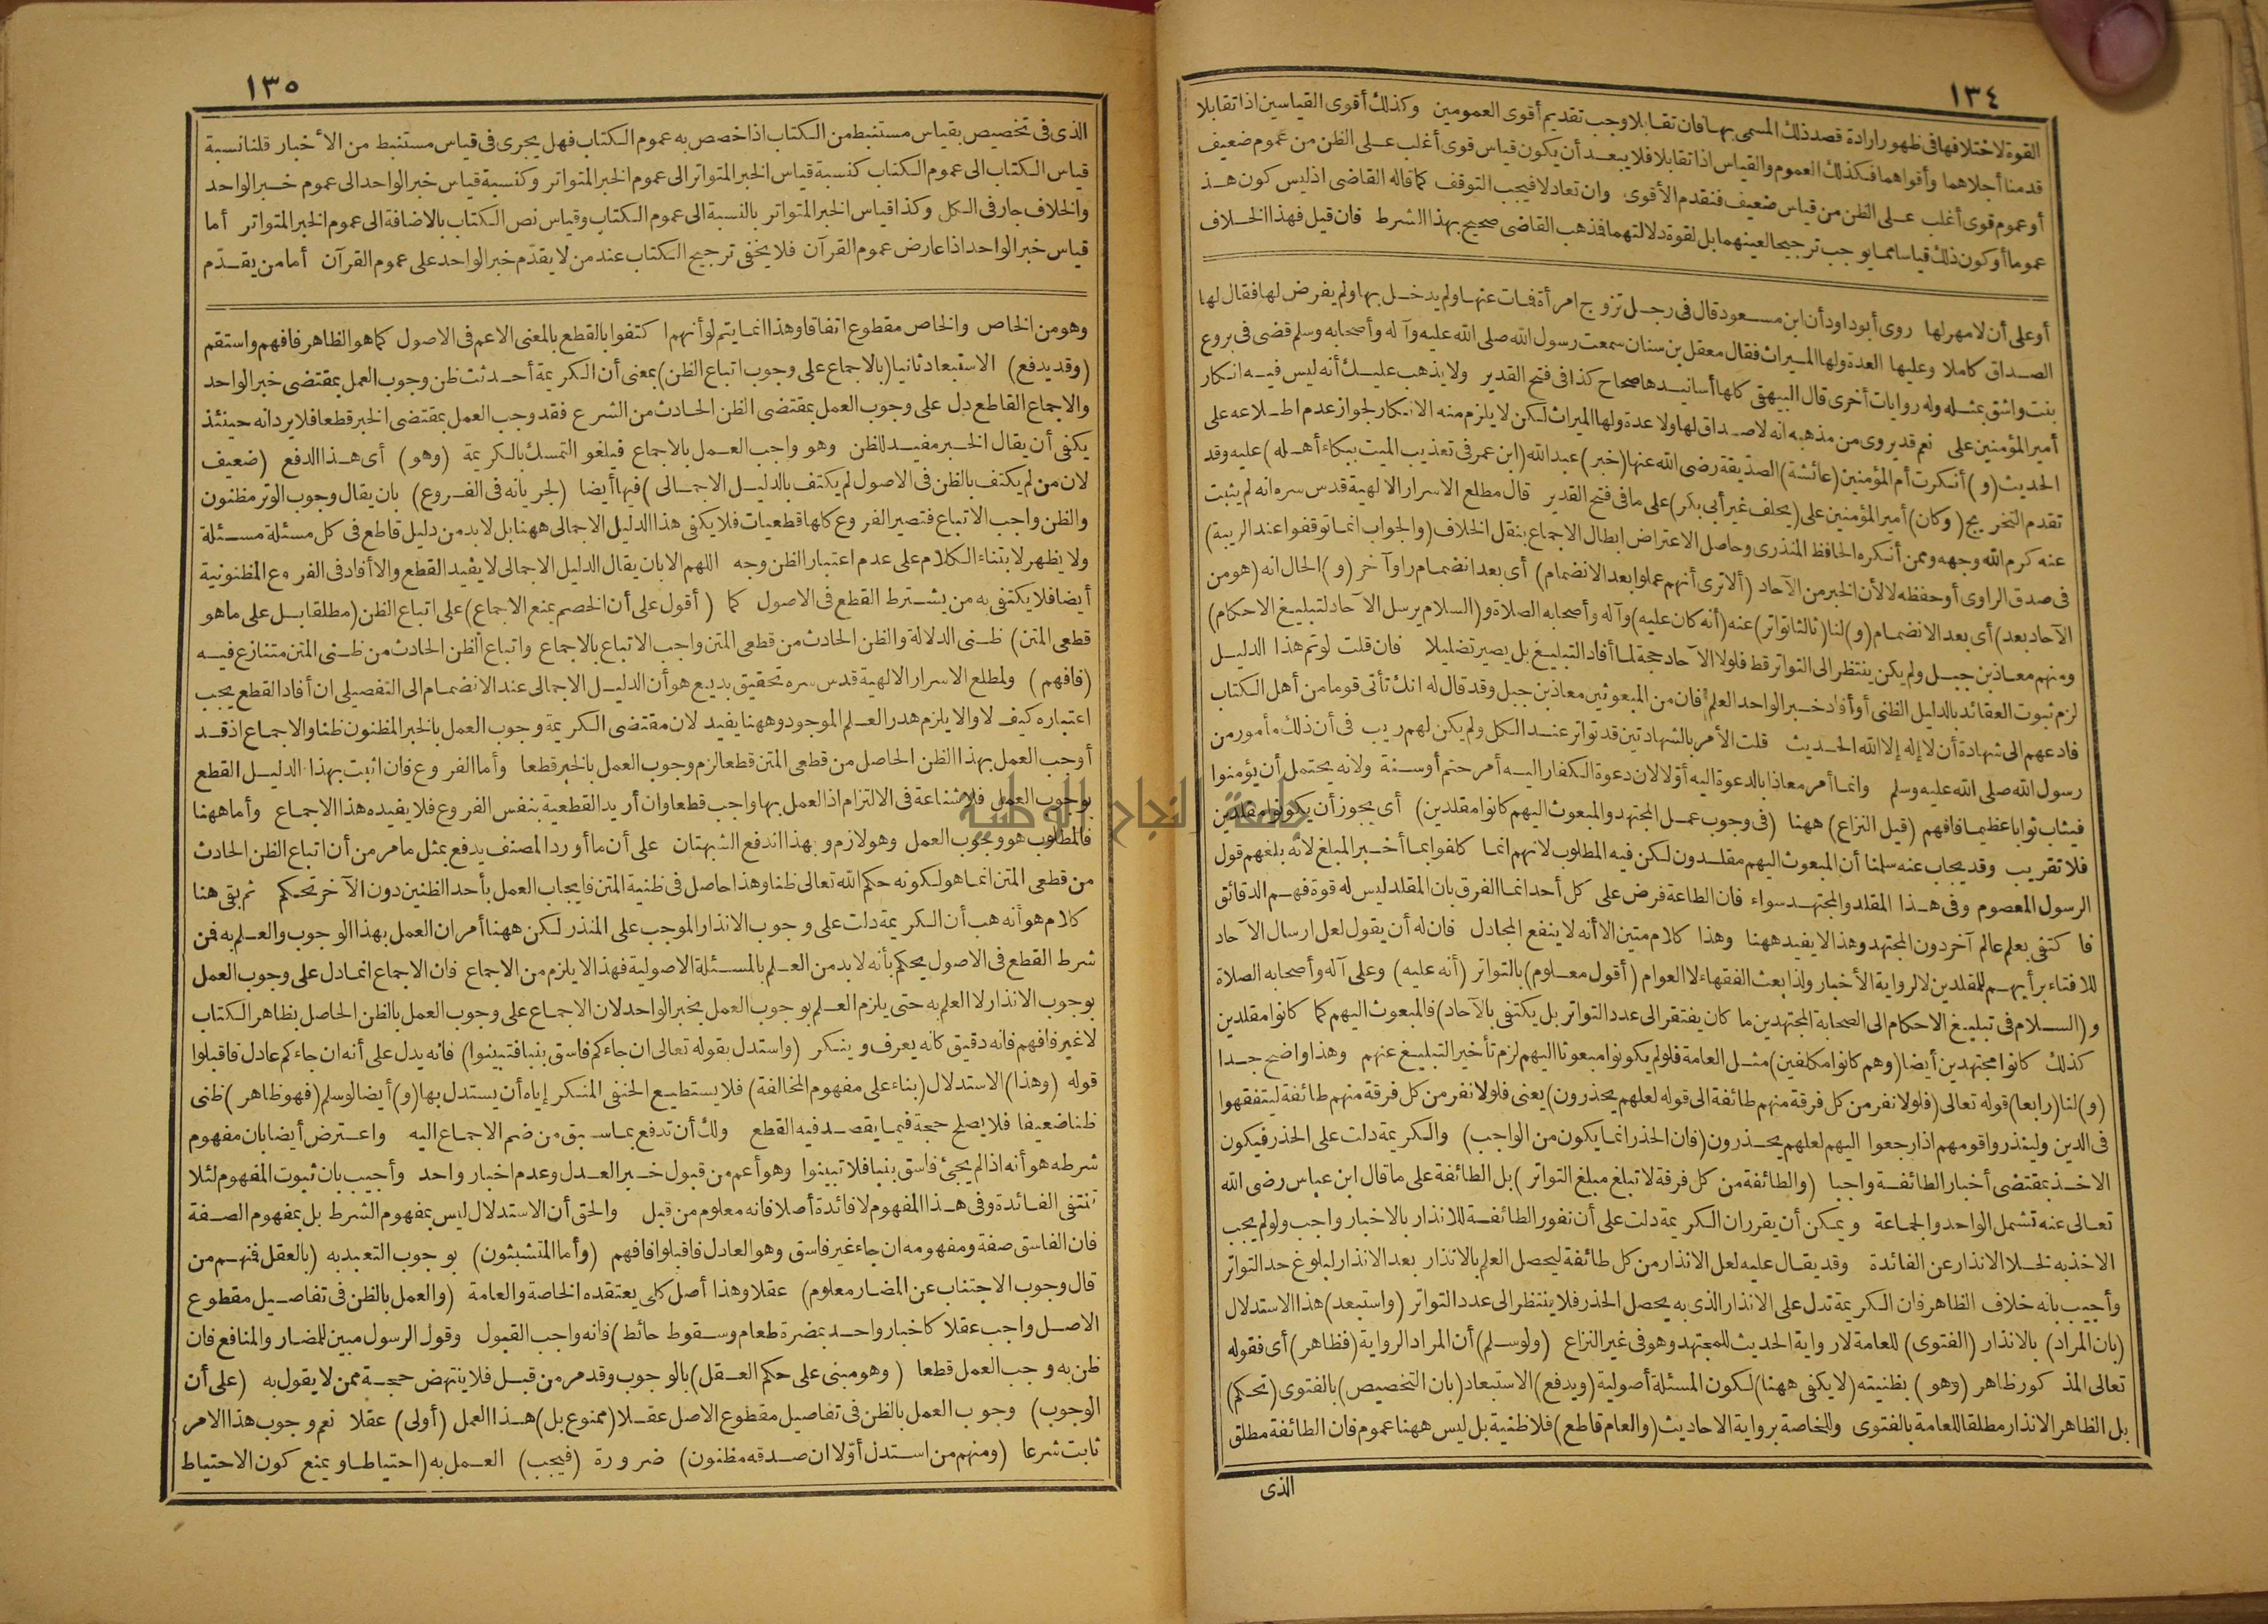 ١٣٤
القوة لاختلافها في ظهور ارادة قصد ذلك المسمى بها فان تقابلا وجب تقديم أقوى العمومين وكذلك أقوى القياسين اذا تقابلا
قدمنا أجلاهما وأقواهما فكذلك العموم والقياس اذا تقابلا فلا يبعد أن يكون قياس قوى أغلب على الظن من عموم ضعيف
أو عموم قوى أغلب على الظن من قياس ضعيف فنقدم الأقوى وان تعادلا فيجب التوقف كما قاله القاضى اذ ليس كون هذ
عموما أو كون ذلك قياسا مما يوجب ترجيحا لعينهما بل لقوة دلالتهما فذهب القاضى صحيح بهذا الشرط فان قيل فهذا الخلاف
أو على أن لا مهر لها روى أبو داود أن ابن مسعود قال فى رجل تزوج امرأة فمات عنها ولم يدخل بها ولم يفرض لها فقال لها
الصداق كاملا وعليها العدة ولها الميراث فقال معقل بن سنان سمعت رسول الله صلى الله عليه وآله وأصحابه وسلم قضى فى بروع
بنت واشق بمثله وله روايات أخرى قال البيهقى كلها أسانيدها صحاح كذا فى فتح القدير ولا يذهب عليك أنه ليس فيه انكار
أمير المؤمنين على نعم قد يروى من مذهبه انه لا صداق لها ولا عدة ولها الميراث لكن لا يلزم منه الانكار لجواز عدم اطلاعه على
الحديث (و) أنكرت أم المؤمنين (عائشة) الصديقة رضى الله عنها (خبر) عبد الله (ابن عمر فى تعذيب الميت ببكاء أهله) عليه وقد
تقدم التخريج (وكان) أمير المؤمنين على (يحلف غير أبى بكر) على ما فى فتح القدير قال مطلع الاسرار الالهية قدس سره انه لم يثبت
عنه كرم الله وجهه وممن أنكره الحافظ المنذرى وحاصل الاعتراض ابطال الاجماع بنقل الخلاف (والجواب انما توقفوا عند الريبة)
فى صدق الراوى أو حفظه لا لأن الخبر من الآحاد (ألا ترى أنهم عملوا بعد الانضمام) أى بعد انضمام راو آخر (و) الحال انه (هو من
الآحاد بعد) أى بعد الانضمام (و) لنا (ثالثا تواتر) عنه (أنه كان عليه) وآله وأصحابه الصلاة و (السلام يرسل الآحاد لتبليغ الاحكام)
ومنهم معاذ بن جبل ولم يكن ينتظر الى التواتر قط فلولا الآحاد حجة لما أفاد التبليغ بل يصير تضليلا فان قلت لو تم هذا الدليل
لزم ثبوت العقائد بالدليل الظنى أو أفاد خبر الواحد العلم فان من المبعوثين معاذ بن جبل وقد قال له انك تأتى قوما من أهل الكتاب
فادعهم الى شهادة أن لا إله إلا الله الحديث قلت الأمر بالشهادتين قد تواتر عند الكل ولم يكن لهم ريب فى أن ذلك مأمور من
رسول الله صلى الله عليه وسلم وانما أمر معاذا بالدعوة اليه أوّلا لان دعوة الكفار اليه أمر حتم أو سنة ولانه يحتمل أن يؤمنوا
فيثاب ثوابا عظيما فافهم (قيل النزاع) ههنا (فى وجوب عمل المجتهد والمبعوث اليهم كانوا مقلدين) أى يجوز أن يكونوا مقلدين
فلا تقريب وقد يجاب عنه سلمنا أن المبعوث اليهم مقلدون لكن فيه المطلوب لانهم انما كلفوا بما أخبر المبلغ لانه بلغهم قول
الرسول المعصوم وفى هذا المقلد والمجتهد سواء فان الطاعة فرض على كل أحد انما الفرق بان المقلد ليس له قوة فهم الدقائق
فاكتفى بعلم عالم آخر دون المجتهد وهذا لا يفيد ههنا وهذا كلام متين الا أنه لا ينفع المجادل فان له أن يقول لعل ارسال الآحاد
للافتاء برأيهم للمقلدين لا لرواية الأخبار ولذا بعث الفقهاء لا العوام (أقول معلوم) بالتواتر (أنه عليه) وعلى آله وأصحابه الصلاة
و (السلام فى تبليغ الاحكام الى الصحابة المجتهدين ما كان يفتقر الى عدد التواتر بل يكتفى بالآحاد) فالمبعوث اليهم كما كانوا مقلدين
كذلك كانوا مجتهدين أيضا (وهم كانوا مكلفين) مثل العامة فلو لم يكونوا مبعوثا اليهم لزم تأخير التبليغ عنهم وهذا واضح جدا
(و) لنا (رابعا) قوله تعالى (فلولا نفر من كل فرقة منهم طائفة الى قوله لعلهم يحذرون) يعنى فلولا نفر من كل فرقة منهم طائفة ليتفقهوا
فى الدين ولينذروا قومهم اذا رجعوا اليهم لعلهم يحذرون (فان الحذر انما يكون من الواجب) والكريمة دلت على الحذر فيكون
الاخذ بمقتضى أخبار الطائفة واجبا (والطائفة من كل فرقة لا تبلغ مبلغ التواتر) بل الطائفة على ما قال ابن عباس رضى الله
تعالى عنه تشمل الواحد والجماعة ويمكن أن يقرر ان الكريمة دلت على أن نفور الطائفة للانذار بالاخبار واجب ولو لم يجب
الاخذ به لخلا الانذار عن الفائدة وقد يقال عليه لعل الانذار من كل طائفة ليحصل العلم بالانذار بعد الانذار لبلوغ حد التواتر
وأجيب بانه خلاف الظاهر فان الكريمة تدل على الانذار الذى به يحصل الحذر فلا ينتظر الى عدد التواتر (واستبعد) هذا الاستدلال
(بان المراد) بالانذار (الفتوى) للعامة لا رواية الحديث للمجتهد وهو فى غير النزاع (ولو سلم) أن المراد الرواية (فظاهر) أى فقوله
تعالى المذكور ظاهر (وهو) بظنيته (لا يكفى ههنا) لكون المسئلة أصولية (ويدفع) الاستبعاد (بان التخصيص) بالفتوى (تحكم)
بل الظاهر الانذار مطلقا للعامة بالفتوى وللخاصة برواية الاحاديث (والعام قاطع) فلا ظنية بل ليس ههنا عموم فان الطائفة مطلق
الذى
١٣٥
الذى فى تخصيص بقياس مستنبط من الكتاب اذا خصص به عموم الكتاب فهل يجرى فى قياس مستنبط من الأخبار قلنا نسبة
قياس الكتاب الى عموم الكتاب كنسبة قياس الخبر المتواتر الى عموم الخبر المتواتر وكنسبة قياس خبر الواحد الى عموم خبر الواحد
والخلاف جار فى الكل وكذا قياس الخبر المتواتر بالنسبة الى عموم الكتاب وقياس نص الكتاب بالاضافة الى عموم الخبر المتواتر أما
قياس خبر الواحد اذا عارض عموم القرآن فلا يخفى ترجيح الكتاب عند من لا يقدّم خبر الواحد على عموم القرآن أما من يقدّم
وهو من الخاص والخاص مقطوع اتفاقا وهذا انما يتم لو أنهم اكتفوا بالقطع بالمعنى الاعم فى الاصول كما هو الظاهر فافهم واستقم
(وقد يدفع) الاستبعاد ثانيا (بالاجماع على وجوب اتباع الظن) بمعنى أن الكريمة أحدثت ظن وجوب العمل بمقتضى خبر الواحد
والاجماع القاطع دل على وجوب العمل بمقتضى الظن الحادث من الشرع فقد وجب العمل بمقتضى الخبر قطعا فلا يرد انه حينئذ
يكفى أن يقال الخبر مفيد للظن وهو واجب العمل بالاجماع فيلغو التمسك بالكريمة (وهو) أى هذا الدفع (ضعيف
لان من لم يكتف بالظن فى الاصول لم يكتف بالدليل الاجمالى) فيها أيضا (لجريانه فى الفروع) بان يقال وجوب الوتر مظنون
والظن واجب الاتباع فتصير الفروع كلها قطعيات فلا يكفى هذا الدليل الاجمالى ههنا بل لا بد من دليل قاطع فى كل مسئلة مسئلة
ولا يظهر لابتناء الكلام على عدم اعتبار الظن وجه اللهم الا بان يقال الدليل الاجمالى لا يفيد القطع والا أفاد فى الفروع المظنونية
أيضا فلا يكتفى به من يشترط القطع فى الاصول كما (أقول على أن الخصم يمنع الاجماع) على اتباع الظن (مطلقا بل على ما هو
قطعى المتن) ظنى الدلالة والظن الحادث من قطعى المتن واجب الاتباع بالاجماع واتباع الظن الحادث من ظنى المتن متنازع فيه
(فافهم) ولمطلع الاسرار الالهية قدس سره تحقيق بديع هو أن الدليل الاجمالى عند الانضمام الى التفصيلى ان أفاد القطع يجب
اعتباره كيف لا والا يلزم هدر العلم الموجود وههنا يفيد لان مقتضى الكريمة وجوب العمل بالخبر المظنون ظنا والاجماع اذ قد
أوجب العمل بهذا الظن الحاصل من قطعى المتن قطعا لزم وجوب العمل بالخبر قطعا وأما الفروع فان اثبت بهذا الدليل القطع
بوجوب العمل فلا شناعة فى الالتزام اذ العمل بها واجب قطعا وان أريد القطعية بنفس الفروع فلا يفيده هذا الاجماع وأما ههنا
فالمطلوب هو وجوب العمل وهو لازم وبهذا اندفع الشبهتان على أن ما أورد المصنف يدفع بمثل ما مر من أن اتباع الظن الحادث
من قطعى المتن انما هو لكونه حكم الله تعالى ظنا وهذا حاصل فى ظنية المتن فايجاب العمل بأحد الظنين دون الآخر تحكم ثم بقى هنا
كلام هو أنه هب أن الكريمة دلت على وجوب الانذار الموجب على المنذر لكن ههنا أمران العمل بهذا الوجوب والعلم به فمن
شرط القطع فى الاصول يحكم بأنه لا بد من العلم بالمسئلة الاصولية فهذا لا يلزم من الاجماع فان الاجماع انما دل على وجوب العمل
بوجوب الانذار لا العلم به حتى يلزم العلم بوجوب العمل بخبر الواحد لان الاجماع على وجوب العمل بالظن الحاصل بظاهر الكتاب
لا غير فافهم فانه دقيق كانه يعرف وينكر (واستدل بقوله تعالى ان جاءكم فاسق بنبا فتبينوا) فانه يدل على أنه ان جاءكم عادل فاقبلوا
قوله (وهذا) الاستدلال (بناء على مفهوم المخالفة) فلا يستطيع الحنفى المنكر إياه أن يستدل بها (و) أيضا لو سلم (فهو ظاهر) ظنى
ظنا ضعيفا فلا يصلح حجة فيما يقصد فيه القطع ولك أن تدفع بما سبق من ضم الاجماع اليه واعترض أيضا بان مفهوم
شرطه هو أنه اذا لم يجئ فاسق بنبا فلا تبينوا وهو أعم من قبول خبر العدل وعدم اخبار واحد وأجيب بان ثبوت المفهوم لئلا
تنتفى الفائدة وفى هذا المفهوم لا فائدة أصلا فانه معلوم من قبل والحق أن الاستدلال ليس بمفهوم الشرط بل بمفهوم الصفة
فان الفاسق صفة ومفهومه ان جاء غير فاسق وهو العادل فاقبلوا فافهم (وأما المتشبثون) بوجوب التعبد به (بالعقل فمنهم من
قال وجوب الاجتناب عن المضار معلوم) عقلا وهذا أصل كلى يعتقده الخاصة والعامة (والعمل بالظن فى تفاصيل مقطوع
الاصل واجب عقلا كاخبار واحد بمضرة طعام وسقوط حائط) فانه واجب القبول وقول الرسول مبين للمضار والمنافع فان
ظن به وجب العمل قطعا (وهو مبنى على حكم العقل) بالوجوب وقد مر من قبل فلا ينتهض حجة ممن لا يقول به (على أن
الوجوب) وجوب العمل بالظن فى تفاصيل مقطوع الاصل عقلا (ممنوع بل) هذا العمل (أولى) عقلا نعم وجوب هذا الامر
ثابت شرعا (ومنهم من استدل أوّلا ان صدقه مظنون) ضرورة (فيجب) العمل به (احتياطا ويمنع كون الاحتياط
جامعة النجاح الوطنية